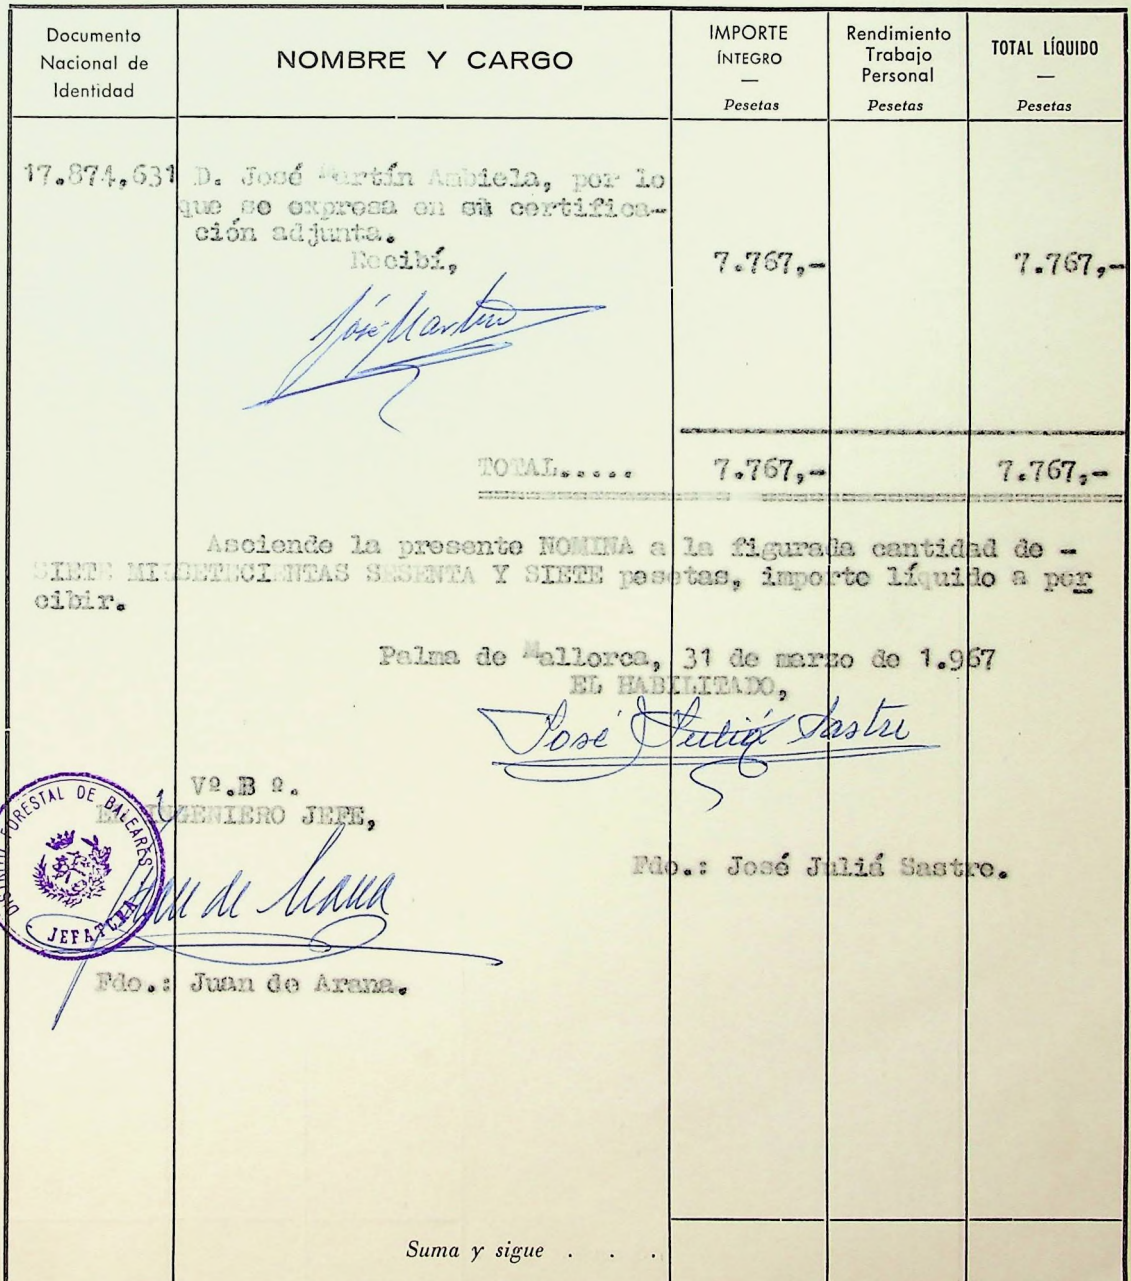 Documento
Nacional de
Identidad
NOMBRE Y CARGO
IMPORTE
ÍNTEGRO
—
Pesetas
Rendimiento
Trabajo
Personal
Pesetas
TOTAL LÍQUIDO
—
Pesetas
17.874,631 D. José Martín Ambiela, por lo
que se expresa en su certifica-
ción adjunta.
Recibí,
7.767,- 7.767,-
José Martín
TOTAL..... 7.767,- 7.767,-
Asciende la presente NOMINA a la figurada cantidad de -
SIETE MIL SETECIENTAS SESENTA Y SIETE pesetas, importe líquido a per
cibir.
Palma de Mallorca, 31 de marzo de 1.967
EL HABILITADO,
José Juliá Sastre
Vº.B º.
EL INGENIERO JEFE,
DISTRITO FORESTAL DE BALEARES
JEFATURA
Juan de Arana
Fdo.: José Juliá Sastre.
Fdo.: Juan de Arana.
Suma y sigue . . .